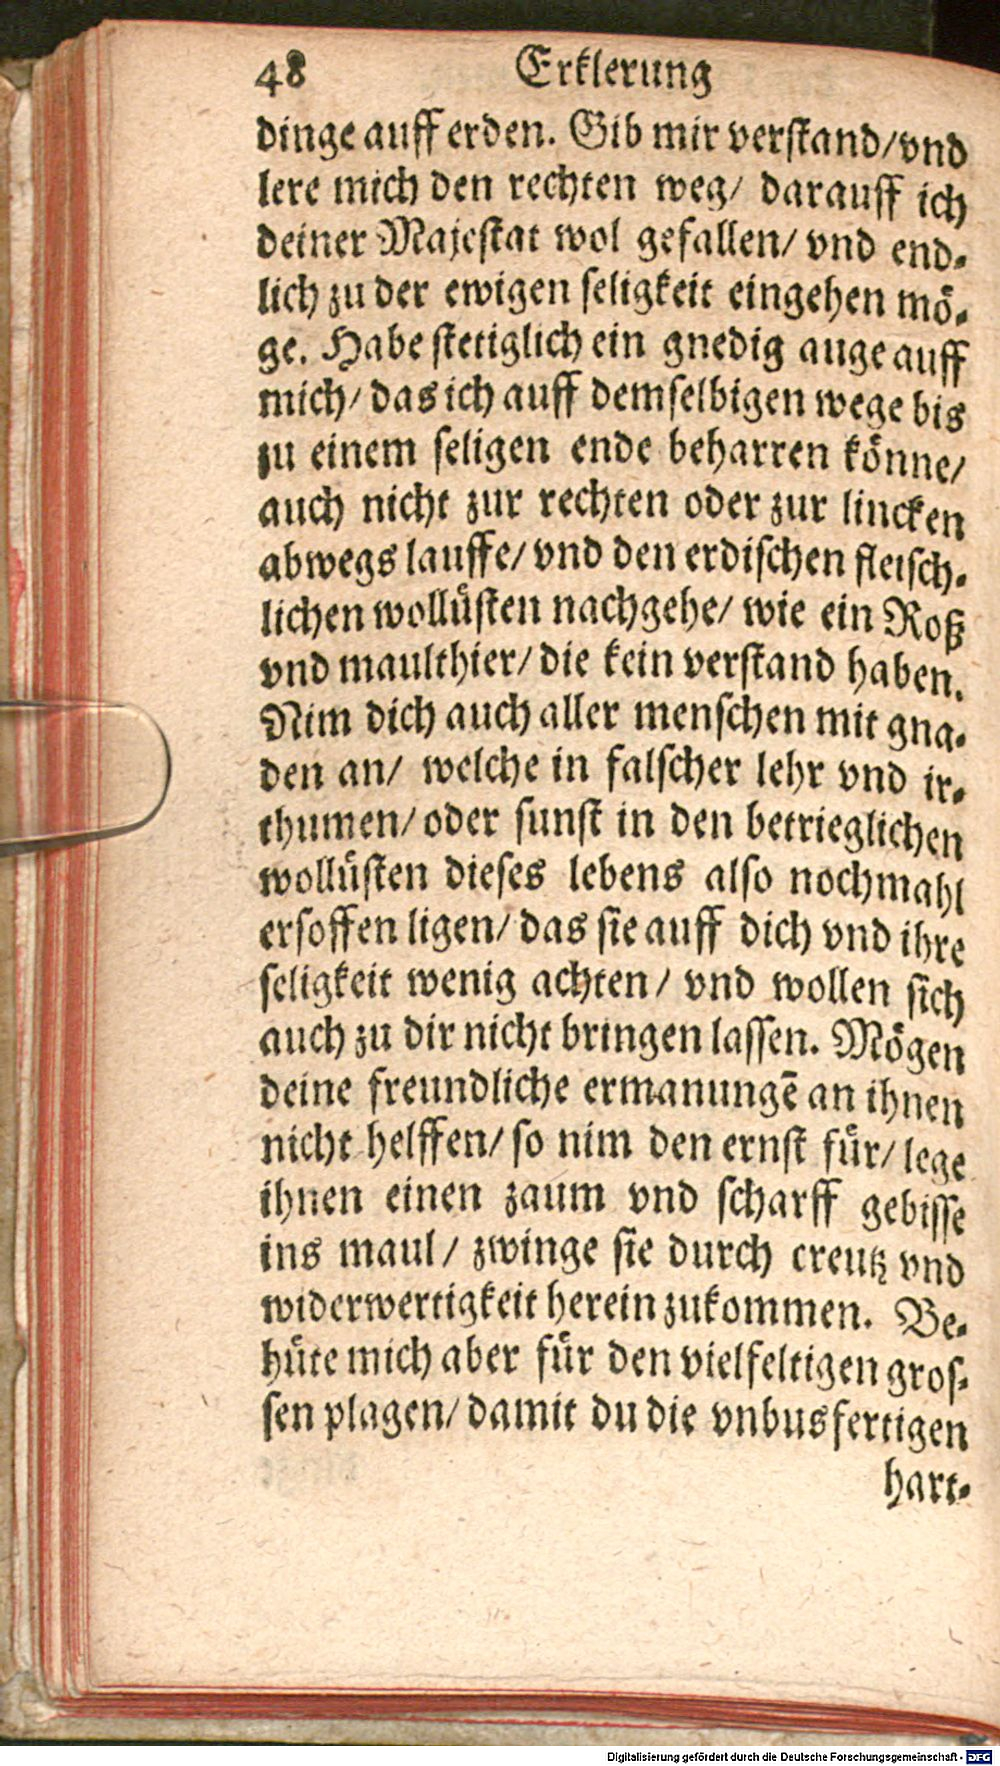 48 Erklerung
dinge auff erden. Gib mir verstand/vnd
lere mich den rechten weg/ darauff ich
deiner Majestat wol gefallen/ vnd end-
lich zu der ewigen seligkeit eingehen mö-
ge. Habe stetiglich ein gnedig auge auff
mich/ das ich auff demselbigen wege bis
zu einem seligen ende beharren könne/
auch nicht zur rechten oder zur lincken
abwegs lauffe/ vnd den erdischen fleisch-
lichen wollüsten nachgehe/ wie ein Roß
vnd maulthier/ die kein verstand haben.
Nim dich auch aller menschen mit gna-
den an/ welche in falscher lehr vnd ir-
thumen/ oder sunst in den betrieglichen
wollüsten dieses lebens also nochmahl
ersoffen ligen/ das sie auff dich vnd ihre
seligkeit wenig achten/ vnd wollen sich
auch zu dir nicht bringen lassen. Mögen
deine freundliche ermanungē an ihnen
nicht helffen/ so nim den ernst für/ lege
ihnen einen zaum vnd scharff gebisse
ins maul/ zwinge sie durch creutz vnd
widerwertigkeit herein zukommen. Be-
hüte mich aber für den vielfeltigen gros-
sen plagen/ damit du die vnbusfertigen
hart-
Digitalisierung gefördert durch die Deutsche Forschungsgemeinschaft - DFG